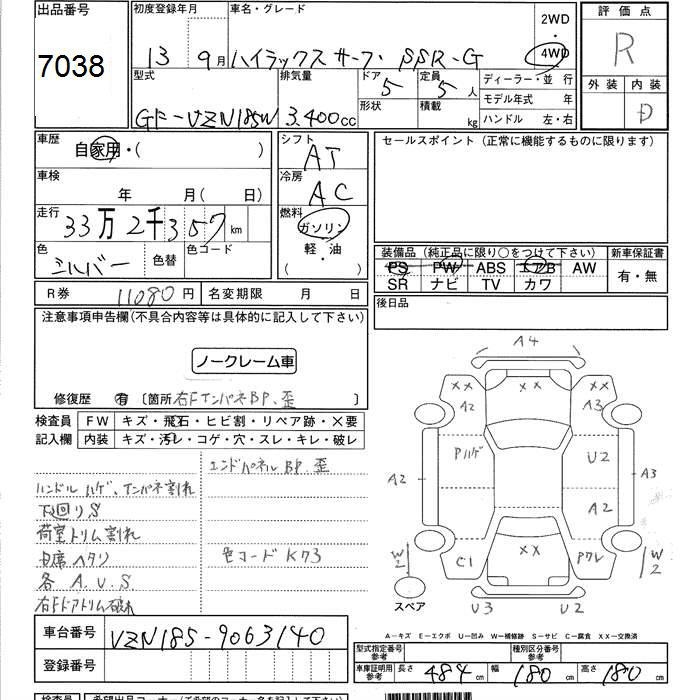 出品番号
7038
初度登録年月
13 9月
車名・グレード
ハイラックスサーフ SSR-G
2WD
・
4WD
型式
GF-VZN185W
排気量
3.400cc
ドア
5
定員
5人
形状
積載
kg
ディーラー・並 行
モデル年式 年
ハンドル 左・右
評価点
R
外装
内装
D
車歴
自家用・( )
車検
年 月( 日)
走行
33万2千357km
色
シルバー
色替
色コード
シフト
AT
冷房
AC
燃料
ガソリン
軽・油
( )
R券 11080円
名変期限 月 日
セールスポイント(正常に機能するものに限ります)
装備品(純正品に限り○をつけて下さい)
新車保証書
PS PW ABS エアB AW
SR ナビ TV カワ
有・無
後日品
注意事項申告欄(不具合内容等は具体的に記入して下さい)
ノークレーム車
修復歴 有 〔箇所 右Fインパネ BP、歪
検査員
記入欄
FW キズ・飛石・ヒビ割・リペア跡・×要
内装 キズ・汚レ・コゲ・穴・スレ・キレ・破レ
エンドパネル BP 歪
ハンドルハゲ、インパネ割れ
下廻りS
荷室トリム割れ
席ヘタリ
色コードK73
各 A.U.S.
右Fドアトリム破れ
A4
××
A2
A3
Pハゲ
U2
A2
A3
A2
W2
C1
××
Pワレ
W2
スペア
U3
U2
A−キズ E−エクボ U−凹み W−補修跡 S−サビ C−腐食 XX−交換済
車台番号 VZN185-9063140
登録番号
型式指定番号
参考
種別区分番号
参考
車庫証明用
参考
長さ 484cm
幅 180cm
高さ 180cm
検査員
希望出品コーナー